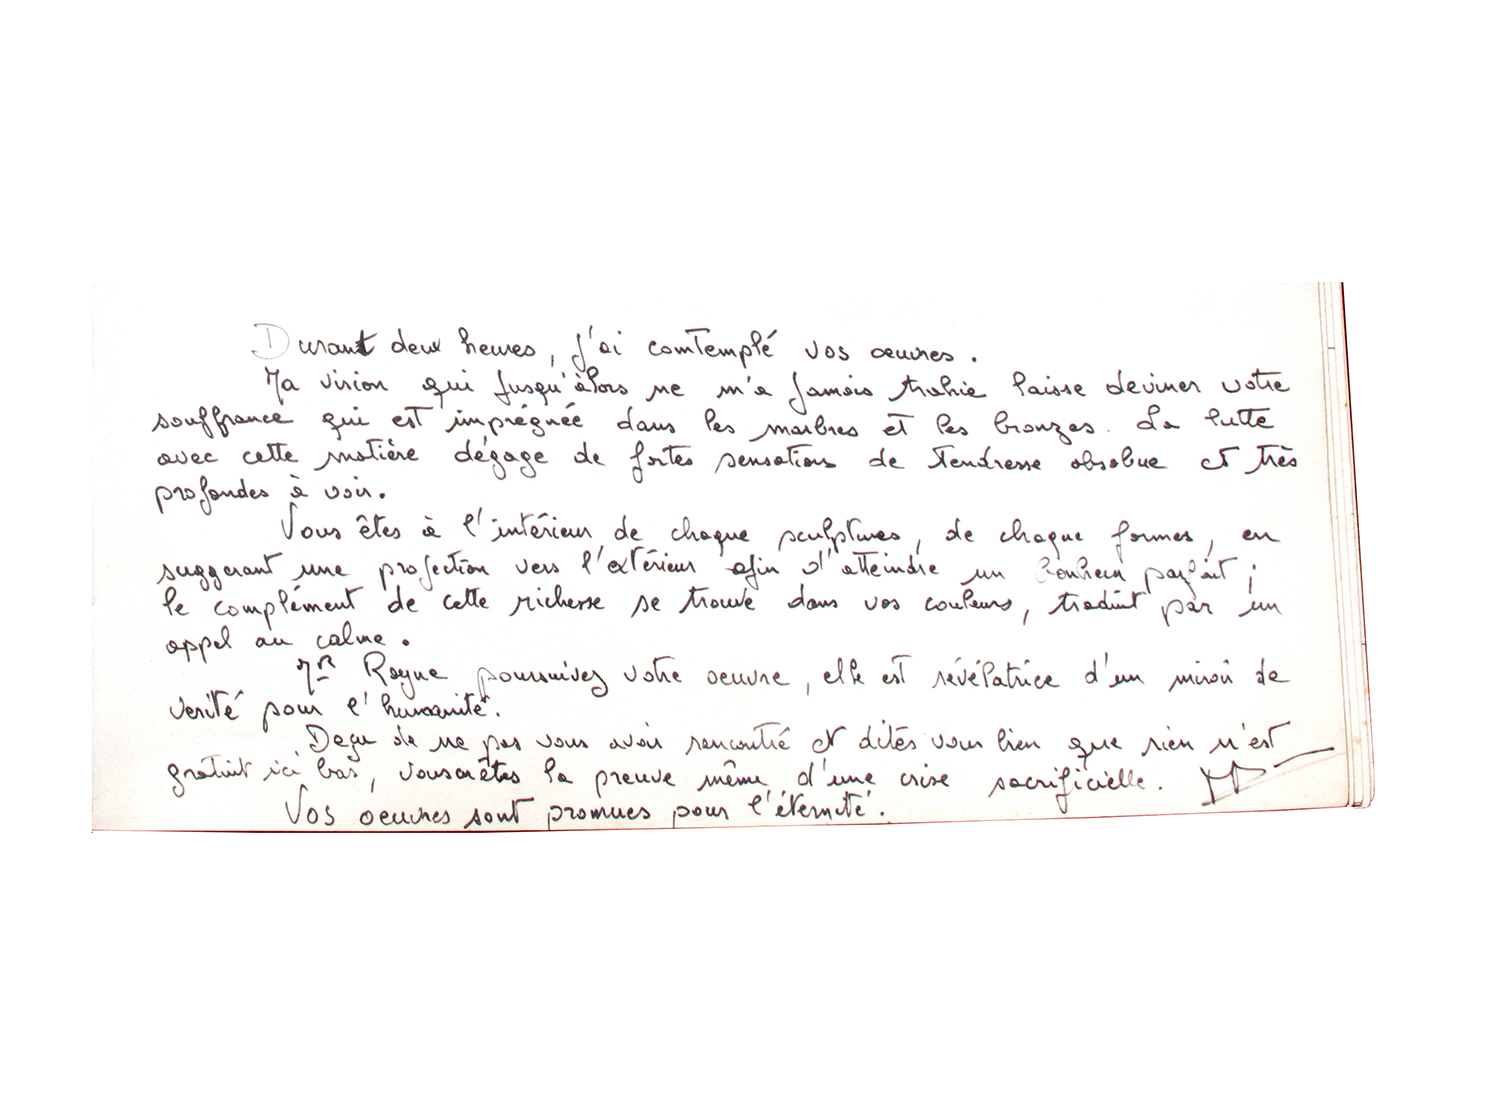 Durant deux heures, j'ai comtemplé vos œuvres.
Ma vision qui jusqu'àlors ne m'a jamais trahie laisse deviner votre
souffrance qui est imprégnée dans les marbres et les bronzes. La lutte
avec cette matière dégage de fortes sensations de tendresse absolue et très
profondes à voir.
Vous êtes à l'intérieur de chaque sculptures, de chaque formes, en
suggerant une projection vers l'extérieur afin d'atteindre un bonheur parfait ;
le complément de cette richesse se trouve dans vos couleurs, traduit par un
appel au calme.
Mr Royne poursuivez votre oeuvre, elle est révélatrice d'un miroir de
verité pour l'humanité.
Deçu de ne pas vous avoir rencontré et dités vous bien que rien n'est
gratuit ici bas, vous êtes la preuve même d'une crise sacrificielle.
Vos oeuvres sont promues pour l'éternité.